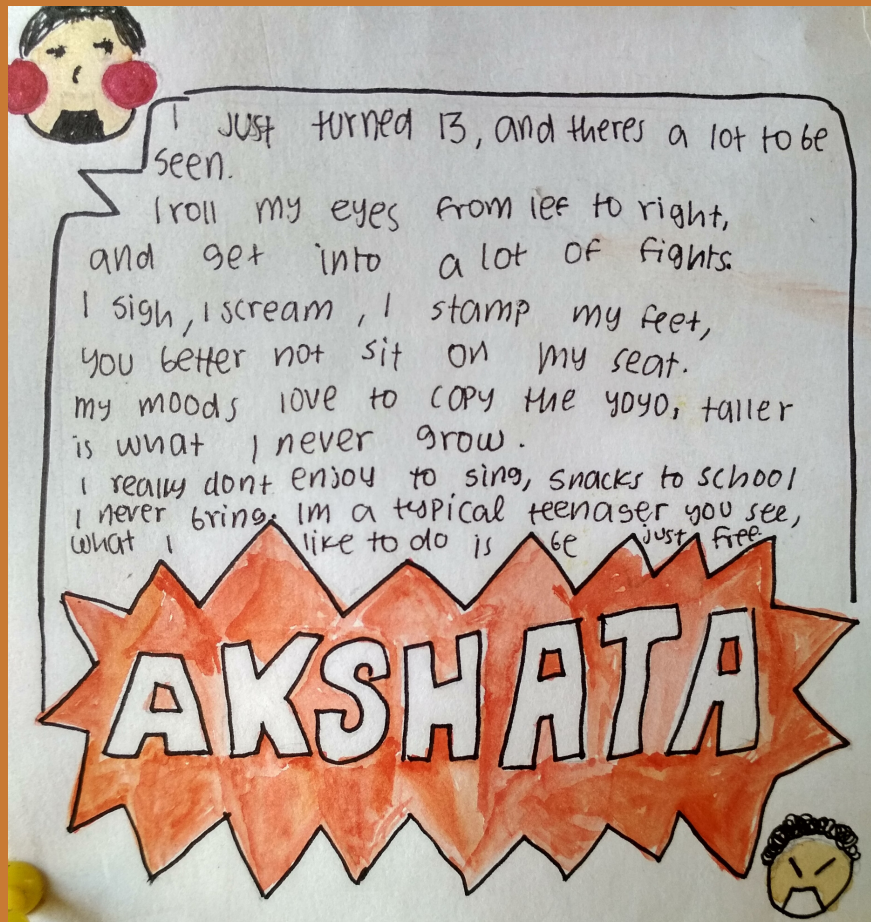 I just turned 13, and theres a lot to be
seen.
I roll my eyes from lef to right,
and get into a lot of fights.
I sigh, I scream, I stamp my feet,
you better not sit on my seat.
my moods love to copy the yoyo, taller
is what I never grow.
I really dont enjoy to sing, snacks to school
I never bring. Im a typical teenager you see,
what I like to do is be just free.
AKSHATA